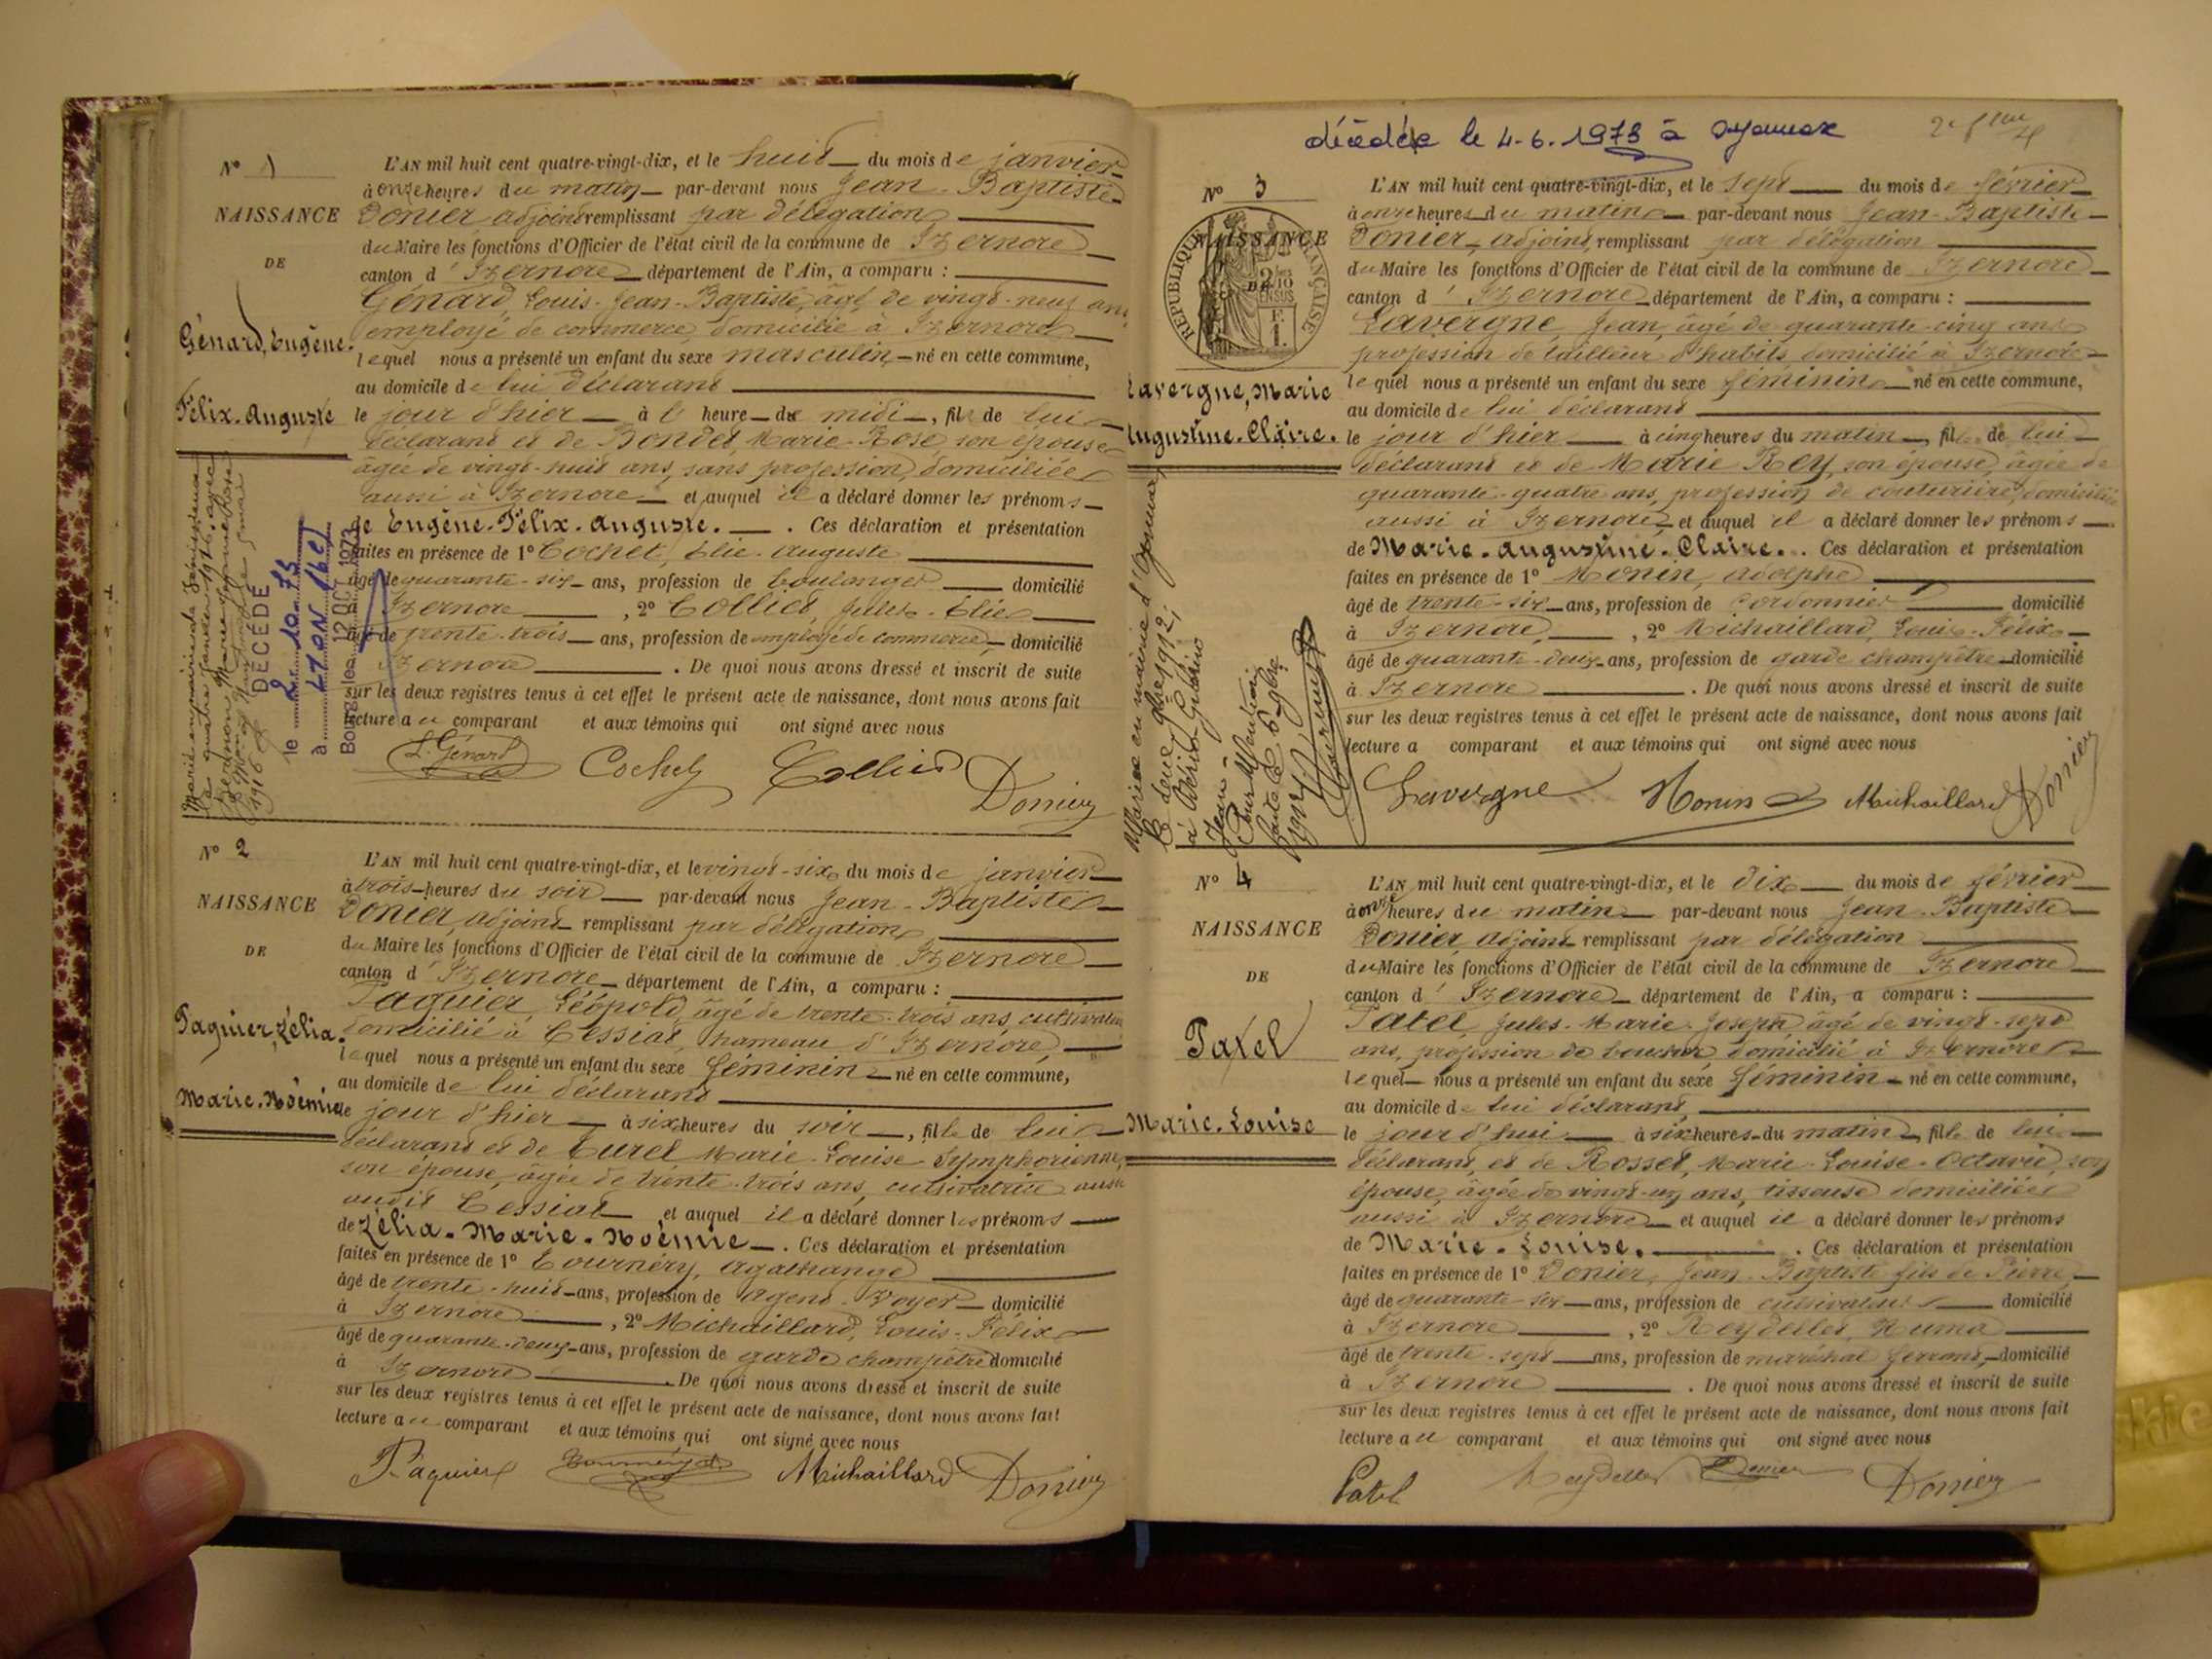 N° 1
NAISSANCE
DE
Génard, Eugène.
Félix. Auguste
L'AN mil huit cent quatre-vingt-dix, et le huit du mois de janvier
à onze heures du matin par-devant nous Jean-Baptiste
Donier adjoint remplissant par délégation
du Maire les fonctions d'Officier de l'état civil de la commune de Izernore
canton d'Izernore département de l'Ain, a comparu :
Génard, Louis-Jean-Baptiste, âgé de vingt-neuf ans
employé de commerce, domicilié à Izernore
lequel nous a présenté un enfant du sexe masculin, né en cette commune,
au domicile de lui déclarant
le jour d'hier à heure de midi, fils de lui
déclarant et de Bondet, Marie-Rose, son épouse
âgée de vingt-huit ans, sans profession, domiciliée
aussi à Izernore et auquel il a déclaré donner les prénoms
de Eugène-Félix-Auguste. . Ces déclaration et présentation
faites en présence de 1° Cochet, Elie-Auguste
âgé de quarante-six ans, profession de boulanger domicilié
Izernore , 2° Colliet, Jules-Elie
âgé de trente-trois ans, profession de employé de commerce, domicilié
Izernore . De quoi nous avons dressé et inscrit de suite
sur les deux registres tenus à cet effet le présent acte de naissance, dont nous avons fait
lecture au comparant et aux témoins qui ont signé avec nous
L. Génard Cochet Colliet Donier
DÉCÉDÉ
le 2.10.73
à LYON (6e)
12 OCT 1973
N° 2
NAISSANCE
DE
Paquier, Zélia.
Marie. Noémie
L'AN mil huit cent quatre-vingt-dix, et le vingt-six du mois de janvier
à trois heures du soir par-devant nous Jean-Baptiste
Donier, adjoint remplissant par délégation
du Maire les fonctions d'Officier de l'état civil de la commune de Izernore
canton d'Izernore département de l'Ain, a comparu :
Paquier, Léopold, âgé de trente-trois ans, cultivateur
domicilié à Cessiat, hameau d'Izernore,
lequel nous a présenté un enfant du sexe féminin né en cette commune,
au domicile de lui déclarant
le jour d'hier à six heures du soir, fille de lui
déclarant et de Curel Marie-Louise-Symphorienne,
son épouse, âgée de trente-trois ans, cultivatrice aussi
audit Cessiat et auquel il a déclaré donner les prénoms
de Zélia-Marie-Noémie. Ces déclaration et présentation
faites en présence de 1° Tournéry, Agathange
âgé de trente-huit ans, profession de agent-voyer domicilié
à Izernore , 2° Michaillard, Louis-Félix
âgé de quarante-deux ans, profession de garde champêtre domicilié
à Izernore . De quoi nous avons dressé et inscrit de suite
sur les deux registres tenus à cet effet le présent acte de naissance, dont nous avons fait
lecture au comparant et aux témoins qui ont signé avec nous
Paquier Michaillard Donier
décédée le 4.6.1973 à Oyonnax
N° 3
NAISSANCE
DE
RÉPUBLIQUE FRANÇAISE
Lavergne, Marie
Augustine. Claire.
L'AN mil huit cent quatre-vingt-dix, et le sept du mois de février
à onze heures du matin par-devant nous Jean-Baptiste
Donier, adjoint remplissant par délégation
du Maire les fonctions d'Officier de l'état civil de la commune de Izernore
canton d'Izernore département de l'Ain, a comparu :
Lavergne, Jean, âgé de quarante-cinq ans
profession de tailleur d'habits domicilié à Izernore
lequel nous a présenté un enfant du sexe féminin né en cette commune,
au domicile de lui déclarant
le jour d'hier à cinq heures du matin, fille de lui
déclarant et de Marie Rey, son épouse, âgée de
quarante-quatre ans, profession de couturière, domiciliée
aussi à Izernore, et auquel il a déclaré donner les prénoms
de Marie-Augustine-Claire. . Ces déclaration et présentation
faites en présence de 1° Monin, Adolphe
âgé de trente-six ans, profession de Cordonnier domicilié
à Izernore, , 2° Michaillard, Louis-Félix
âgé de quarante-deux ans, profession de garde champêtre domicilié
à Izernore . De quoi nous avons dressé et inscrit de suite
sur les deux registres tenus à cet effet le présent acte de naissance, dont nous avons fait
lecture a comparant et aux témoins qui ont signé avec nous
Lavergne Monin Michaillard Donier
Mariée en mairie d'Oyonnax
N° 4
NAISSANCE
DE
Patel
Marie. Louise
L'AN mil huit cent quatre-vingt-dix, et le dix du mois de février
à onze heures du matin par-devant nous Jean-Baptiste
Donier, adjoint remplissant par délégation
du Maire les fonctions d'Officier de l'état civil de la commune de Izernore
canton d'Izernore département de l'Ain, a comparu :
Patel, Jules-Marie-Joseph, âgé de vingt-sept
ans, profession de domicilié à Izernore
lequel nous a présenté un enfant du sexe féminin né en cette commune,
au domicile de lui déclarant,
le jour d'hui à six heures du matin, fille de lui
déclarant, et de Rosset, Marie-Louise-Octavie, son
épouse, âgée de vingt-un ans, tisseuse domiciliée
aussi à Izernore et auquel il a déclaré donner les prénoms
de Marie-Louise. . Ces déclaration et présentation
faites en présence de 1° Donier, Jean-Baptiste fils de Pierre,
âgé de quarante-six ans, profession de cultivateur domicilié
à Izernore , 2° Reydellet, Numa
âgé de trente-sept ans, profession de maréchal ferrant, domicilié
à Izernore . De quoi nous avons dressé et inscrit de suite
sur les deux registres tenus à cet effet le présent acte de naissance, dont nous avons fait
lecture au comparant et aux témoins qui ont signé avec nous
Patel Reydellet Donier Donier